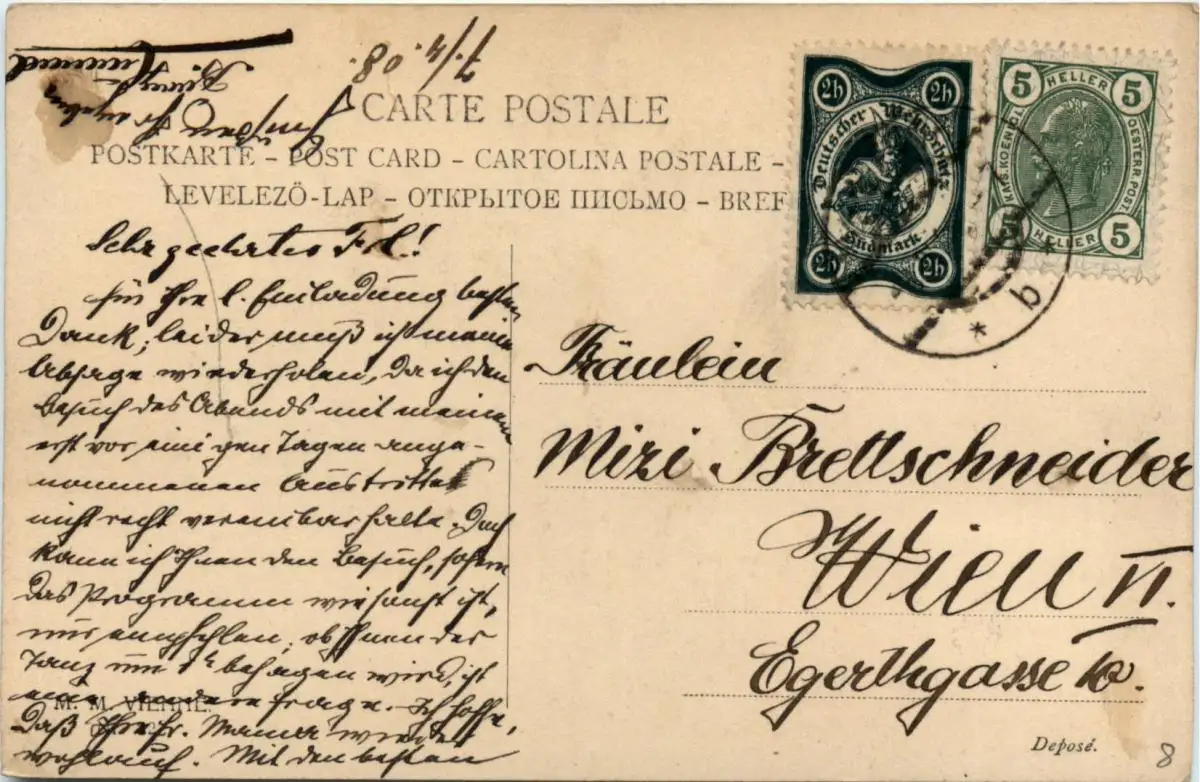 7./4.08.
CARTE POSTALE
POSTKARTE - POST CARD - CARTOLINA POSTALE -
LEVELEZÖ-LAP - ОТКРЫТОЕ ПИСЬМО - BREF
2h 2h
Deutscher Wehrschatz
Südmark
2h 2h
5 HELLER 5
KAIS. KOENIGL. OESTERR. POST
5 HELLER 5
* b *
Sehr geehrtes Frl.!
für Ihre l. Einladung besten
Dank; leider muß ich meine
Absage wiederholen, da ich den
Besuch des Abends mit meinem
erst vor einigen Tagen ange-
nommenen Austritte
nicht recht vereinbar halte. Doch
kann ich Ihnen den Besuch, sofern
das Programm wie sonst ist,
nur empfehlen; ob Ihnen der
Tanz um 1h behagen wird, ist
eine andere Frage. Ich hoffe,
daß Ihre Fr. Mama wieder
wohlauf. Mit den besten
Grüßen Ihr ergebener
M. M. VIENNE.
Fräulein
Mizi Brettschneider
Wien VI.
Egerthgasse 10.
Deposé.
8